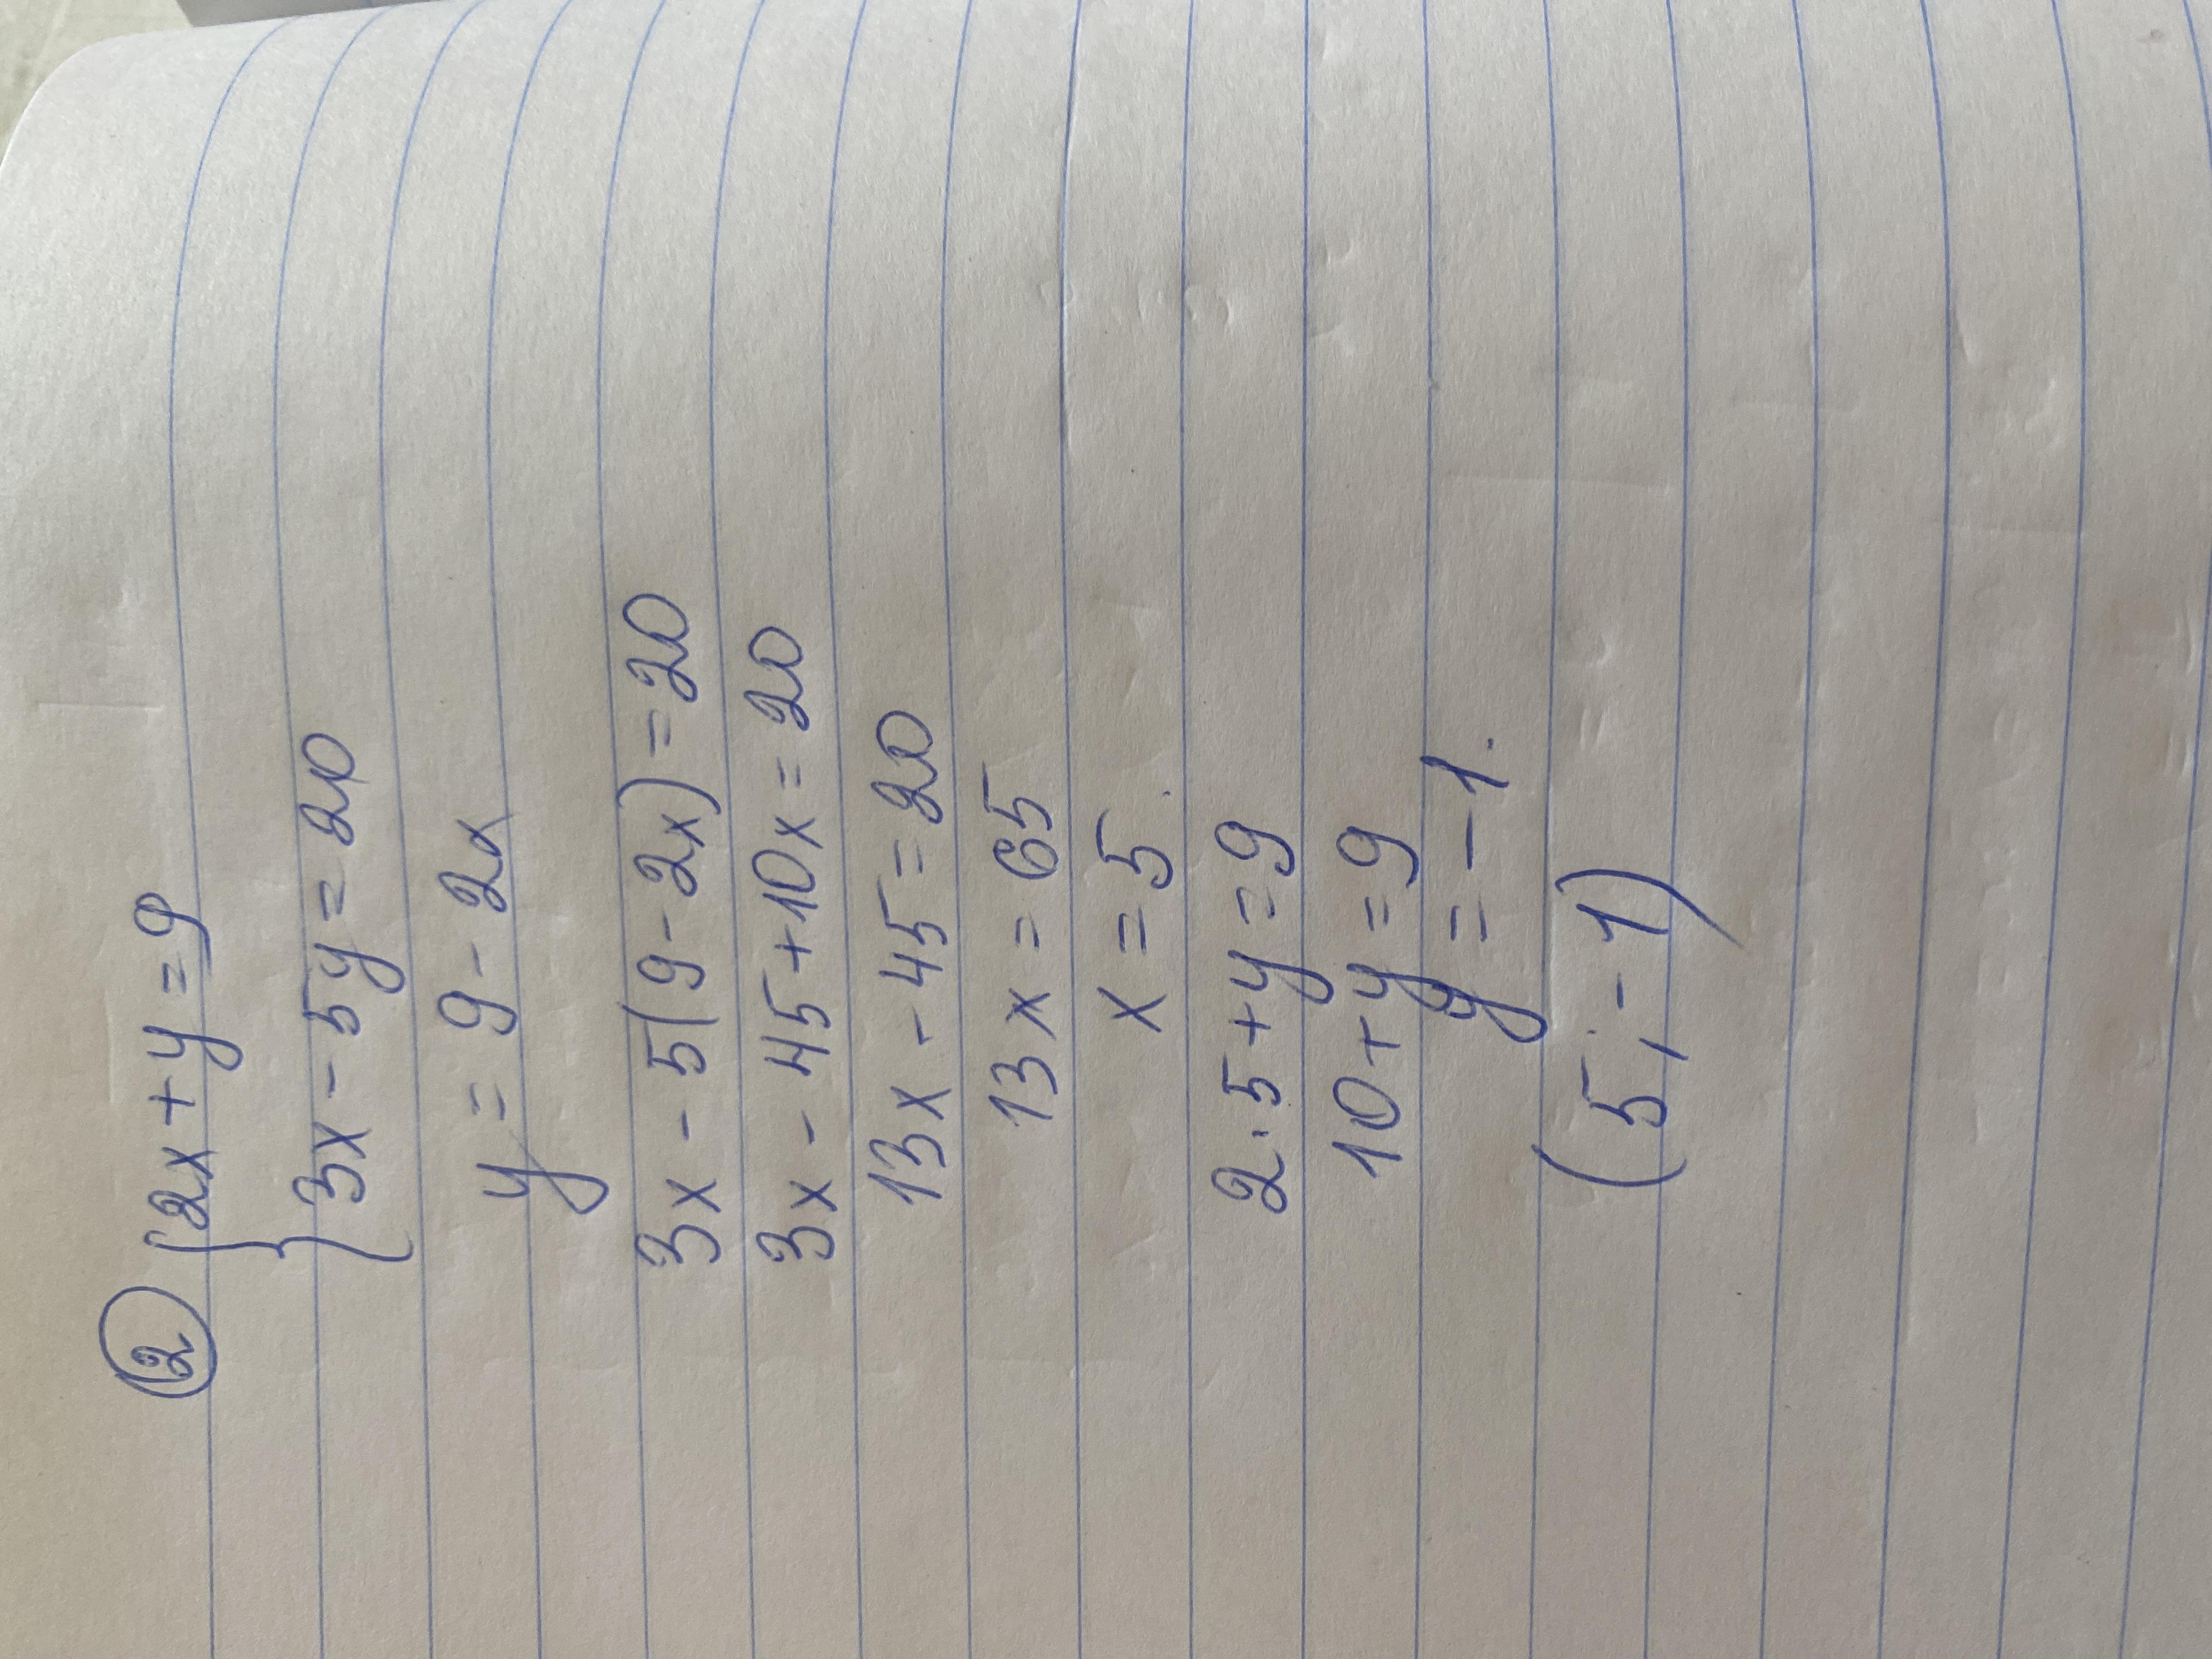 ② { 2x + y = 9
3x - 5y = 20
y = 9 - 2x
3x - 5(9 - 2x) = 20
3x - 45 + 10x = 20
13x - 45 = 20
13x = 65
x = 5
2 · 5 + y = 9
10 + y = 9
y = -1.
(5; -1)